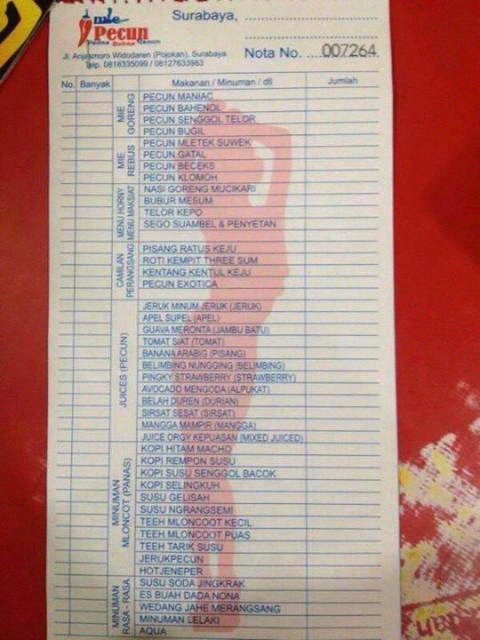 mie
Pecun
Surabaya,
Jl. Anjasmoro Widodaren (Pojokan), Surabaya
Telp. 0816335099 / 08127633983
Nota No. ....007264
No. Banyak Makanan / Minuman / dll Jumlah
MIE GORENG
PECUN MANIAC
PECUN BAHENOL
PECUN SENGGOL TELOR
PECUN BUGIL
MIE REBUS
PECUN MLETEK SUWEK
PECUN GATAL
PECUN BECEKS
PECUN KLOMOH
MENU HORNY
MENU MAKSIAT
NASI GORENG MUCIKARI
BUBUR MESUM
TELOR KEPO
SEGO SUAMBEL & PENYETAN
CAMILAN
PERANGSANG
PISANG RATUS KEJU
ROTI KEMPIT THREE SUM
KENTANG KENTUL KEJU
PECUN EXOTICA
JUICES (PECUN)
JERUK MINUM JERUK (JERUK)
APEL SUPEL (APEL)
GUAVA MERONTA (JAMBU BATU)
TOMAT SIAT (TOMAT)
BANANA ARABIG (PISANG)
BELIMBING NUNGGING (BELIMBING)
PINGKY STRAWBERRY (STRAWBERRY)
AVOCADO MENGODA (ALPUKAT)
BELAH DUREN (DURIAN)
SIRSAT SESAT (SIRSAT)
MANGGA MAMPIR (MANGGA)
JUICE ORGY KEPUASAN (MIXED JUICED)
MINUMAN
MLONCOT (PANAS)
KOPI HITAM MACHO
KOPI REMPON SUSU
KOPI SUSU SENGGOL BACOK
KOPI SELINGKUH
SUSU GELISAH
SUSU NGRANGSEMI
TEEH MLONCOOT KECIL
TEEH MLONCOOT PUAS
TEEH TARIK SUSU
JERUKPECUN
HOTJENEPER
MINUMAN
RASA - RASA
SUSU SODA JINGKRAK
ES BUAH DADA NONA
WEDANG JAHE MERANGSANG
MINUMAN LELAKI
AQUA